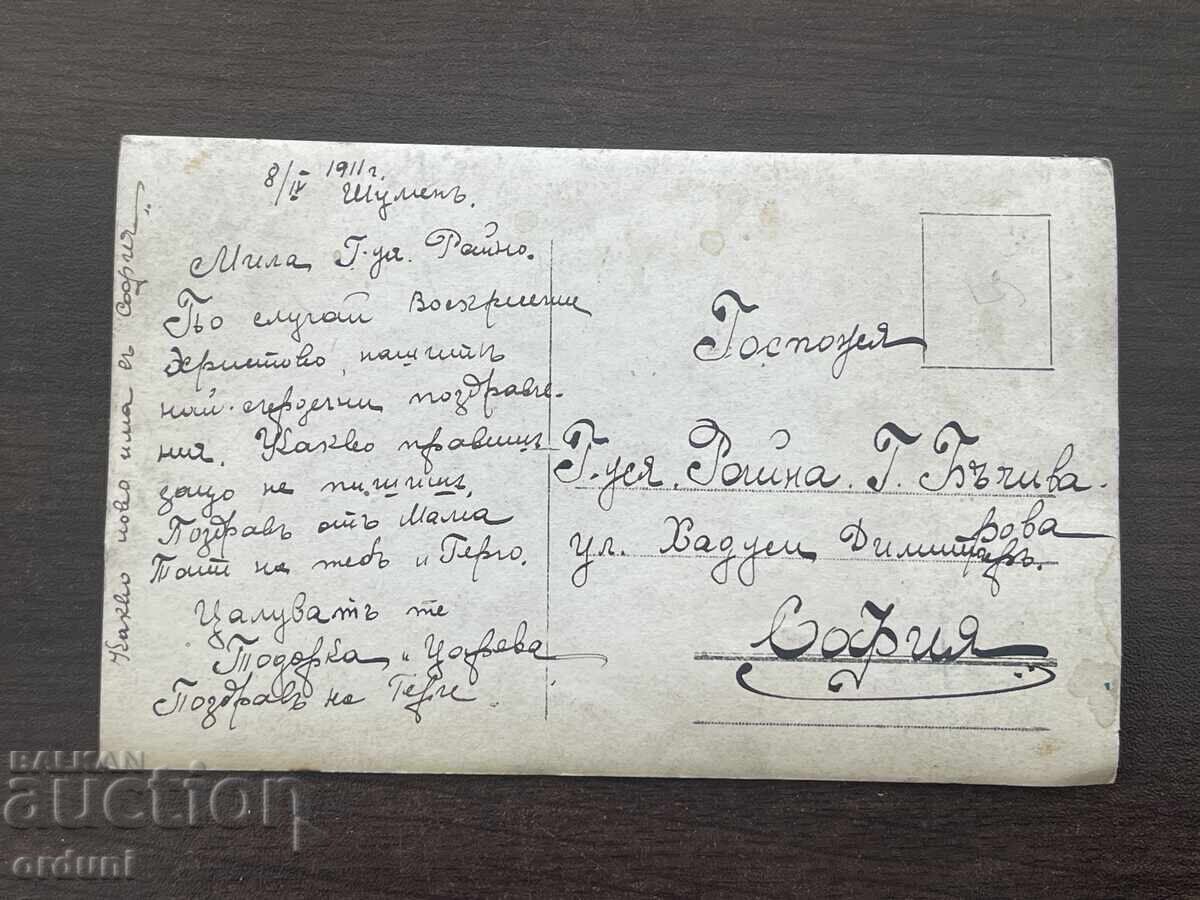 8/IV 1911 г.
Шуменъ.
Мила Г-ця. Райно.
По случай Воскрсение
Христово, пашитъ
най-сердечни поздравле-
ния. Какво правишъ
защо не пишишъ,
Поздравъ отъ Мама
Татт на тебъ и Герго.
Цалуватъ те
Тодорка и Царева
Поздравъ на Герге
Какво ново има съ София
Госпожея
Г-ця. Райна. Г. Бъчива.
ул. Хаджи Димитрова
София
BALKAN
auction
orduni